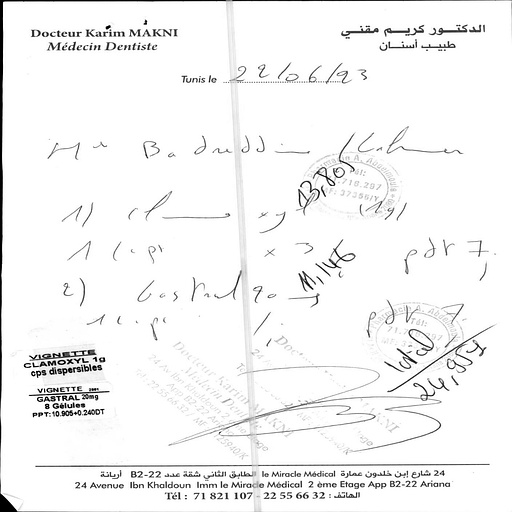 Docteur Karim MAKNI
Médecin Dentiste
الدكتور كريم مقني
طبيب أسنان
Tunis le 22/06/23
Mr Badreddine
13,805
1) clamoxyl (1g)
1 cp x 3 pdt 7j
11,146
2) Gastral 20mg
1 cp /j pdt 7j
Total
24,951
VIGNETTE
CLAMOXYL 1g
cps dispersibles
VIGNETTE
GASTRAL 20mg
8 Gélules
PPT:10.905+0.240DT
Docteur Karim MAKNI
Médecin Dentiste
24 شارع إبن خلدون عمارة le Miracle Médical الطابق الثاني شقة عدد B2-22 أريانة
24 Avenue Ibn Khaldoun Imm le Miracle Médical 2 ème Etage App B2-22 Ariana
Tél : 71 821 107 - 22 55 66 32 : الهاتف